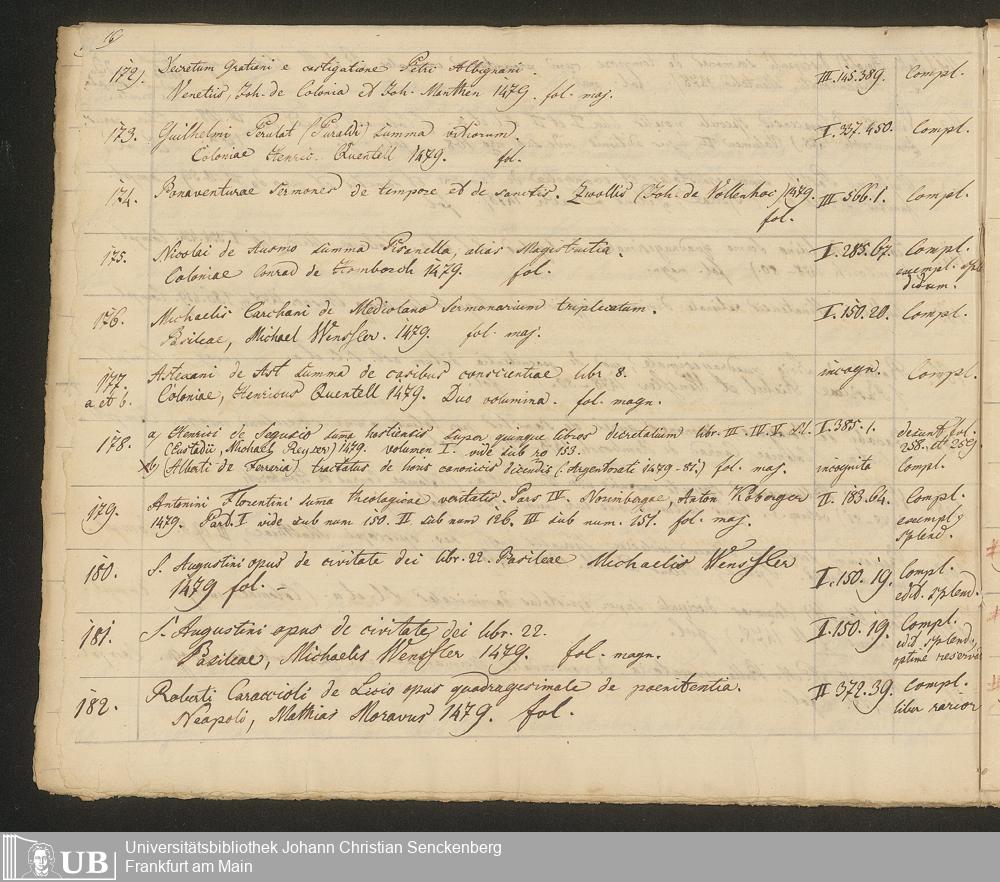 16
172). Decretum Gratiani e castigatione Petri Albignani. III. 145. 389. Compl.
Venetiis, Joh. de Colonia et Joh. Manthen 1479. fol. maj.
173. Guilhelmi Perulat (Puraldi) Summa vitiorum. I. 337. 450. Compl.
Coloniae Henric. Quentell 1479. fol.
174. Bonaventurae Sermones de tempore et de sanctis. Zwollis (Joh. de Vollenhoe) 1479. III 566. 1. Compl.
fol.
175. Nicolai de Ausmo Summa Pisanella, alias Magistrutia. I. 285. 67. Compl.
Coloniae Conrad de Homborch 1479. fol. exempl. splen
didum.
176. Michaelis Carchani de Mediolano Sermonarium triplicatum. I. 150. 20. Compl.
Basileae, Michael Wenssler. 1479. fol. maj.
177. Astexani de Ast Summa de casibus conscientiae libr. 8. incogn. Compl.
a et b. Coloniae, Henricus Quentell 1479. Duo volumina. fol. magn.
178. a) Henrici de Segusio suma hostiensis super quinque libros decretalium libr. III. IV. V. I. 385. 1. desunt fol.
(Eustadii, Michael Reyser) 1479. volumen I. vide sub no 153. 258. et 259
b) (Alberti de Ferraria) tractatus de horis canonicis dicendis (Argentorati 1479-81.) fol. maj. incognita Compl.
179. Antonini Florentini suma theologicae veritatis. Pars IV. Nourmbergae, Anton Koberger II. 183. 64. Compl.
1479. Part. I vide sub num 150. II sub num 126. III sub num. 151. fol. maj. exempl.
splend.
180. S. Augustini opus de civitate dei libr. 22. Basileae Michaelis Wenssler I. 150. 19. Compl.
1479 fol. edit. splend.
181. S. Augustini opus de civitate dei libr. 22. I. 150. 19. Compl.
Basileae, Michaelis Wenssler 1479. fol. magn. edit splend.
optime reserva
182. Roberti Caraccioli de Licio opus quadragesimale de poenitentia. II 372. 39. Compl.
Neapoli, Mathias Moravus 1479. fol. liber rarior
UB Universitätsbibliothek Johann Christian Senckenberg
Frankfurt am Main